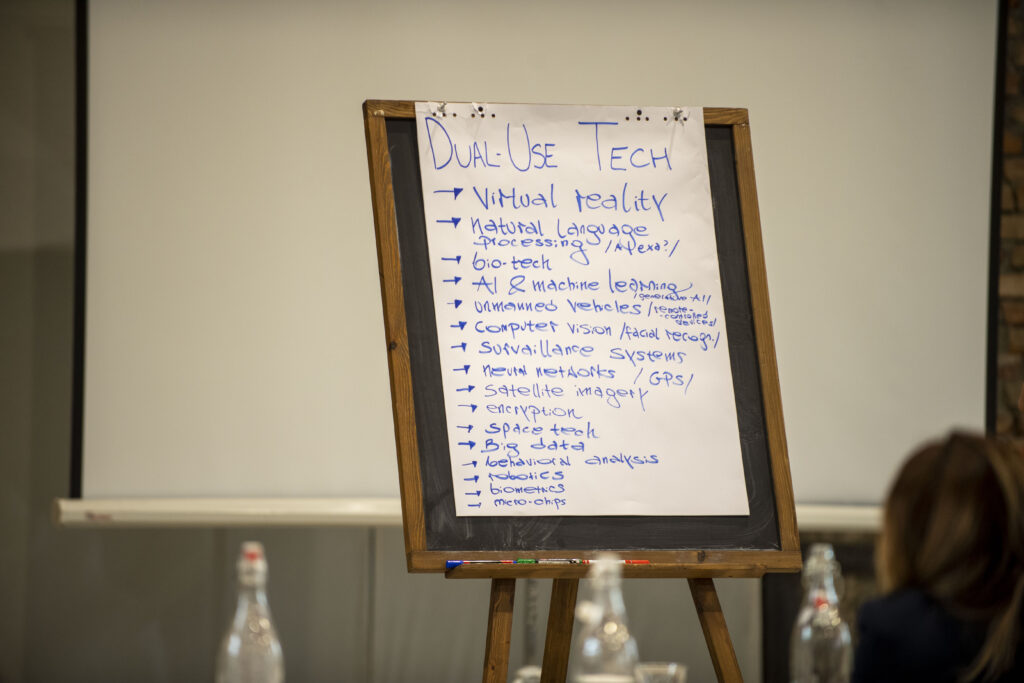 DUAL-USE TECH
→ Virtual reality
→ natural language
processing /Alexa?/
→ bio-tech
→ AI & machine learning
/generative-AI/
→ unmanned vehicles /remote-
-controlled
devices/
→ Computer vision /facial recogn./
→ Survaillance systems
→ neural networks /GPS/
→ Satellite imagery
→ encryption
→ Space tech
→ Big data
→ behavioral analysis
→ robotics
→ biometrics
→ micro-chips